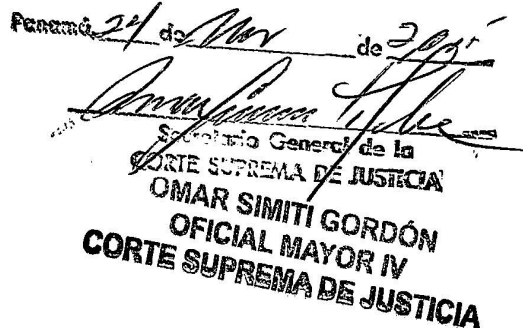 Panamá, 24 de de
Secretario General de la
CORTE SUPREMA DE JUSTICIA
OMAR SIMITI GORDÓN
OFICIAL MAYOR IV
CORTE SUPREMA DE JUSTICIA